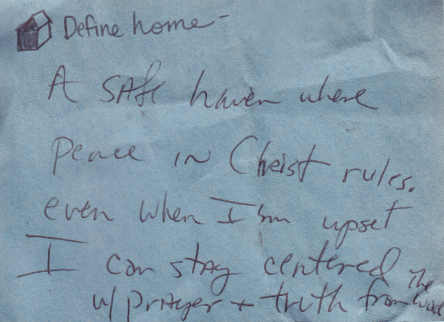 Define home-
A SAfe haven where
Peace in Christ rules.
even when I'm upset
I can stay centered
w/ prayer + truth from The Word